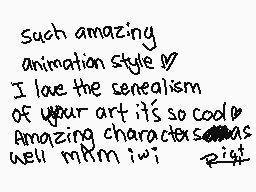 such amazing
animation style ♡
I love the senealism
of your art it's so cool♡
Amazing characters as
well mhm iwi